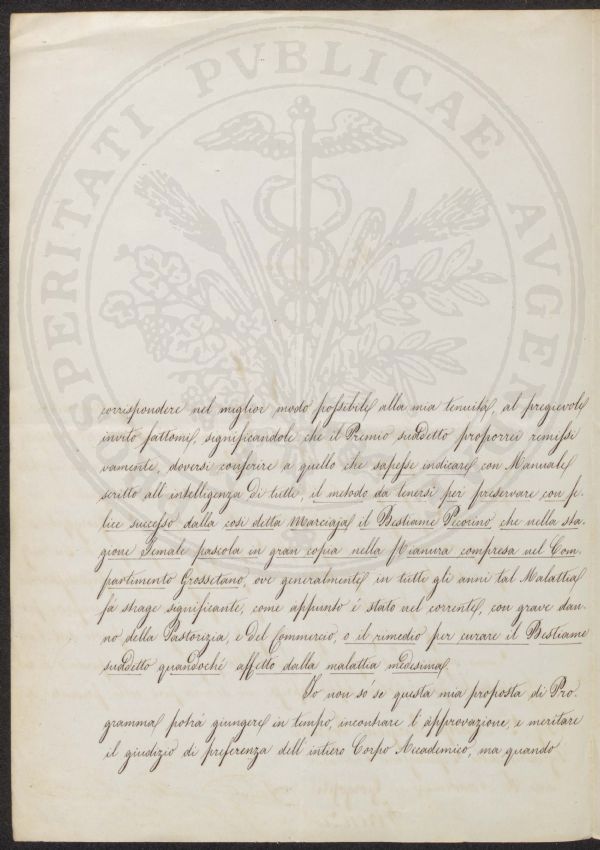 PROSPERITATI PVBLICAE AVGENDAE
corrispondere nel miglior modo possibile alla mia tenuità, al pregievole
invito fattomi, significandole che il Premio suddetto proporrei remissi
vamente, doversi conferire a quello che sapesse indicare con Manuale
scritto all'intelligenza di tutti, il metodo da tenersi per preservare con fe-
lice successo dalla così detta Marciaja il Bestiame Pecorino, che nella sta-
gione Jemale pascola in gran copia nella Pianura compresa nel Com-
partimento Grossetano, ove generalmente in tutti gli anni tal Malattia
fà strage significante, come appunto è stato nel corrente, con grave dan-
no della Pastorizia, e del Commercio, o il rimedio per curare il Bestiame
suddetto quandochè affetto dalla malattia medesima.
Io non sò se questa mia proposta di Pro-
gramma potrà giungere in tempo, incontrare l'approvazione, e meritare
il giudizio di preferenza dell'intiero Corpo Accademico, ma quando